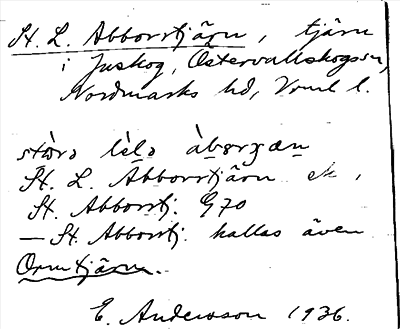 St. L. Abborrtjärn, tjärn
i Juskog, Östervallskogssn,
Nordmarks hd, Vrml l.
stòrə lèlə àbərɟæn
St. L. Abborrtjärn ek,
St. Abborrtj. G70
— St. Abborrtj. kallas även
Ormtjärn.
E. Andersson 1936.